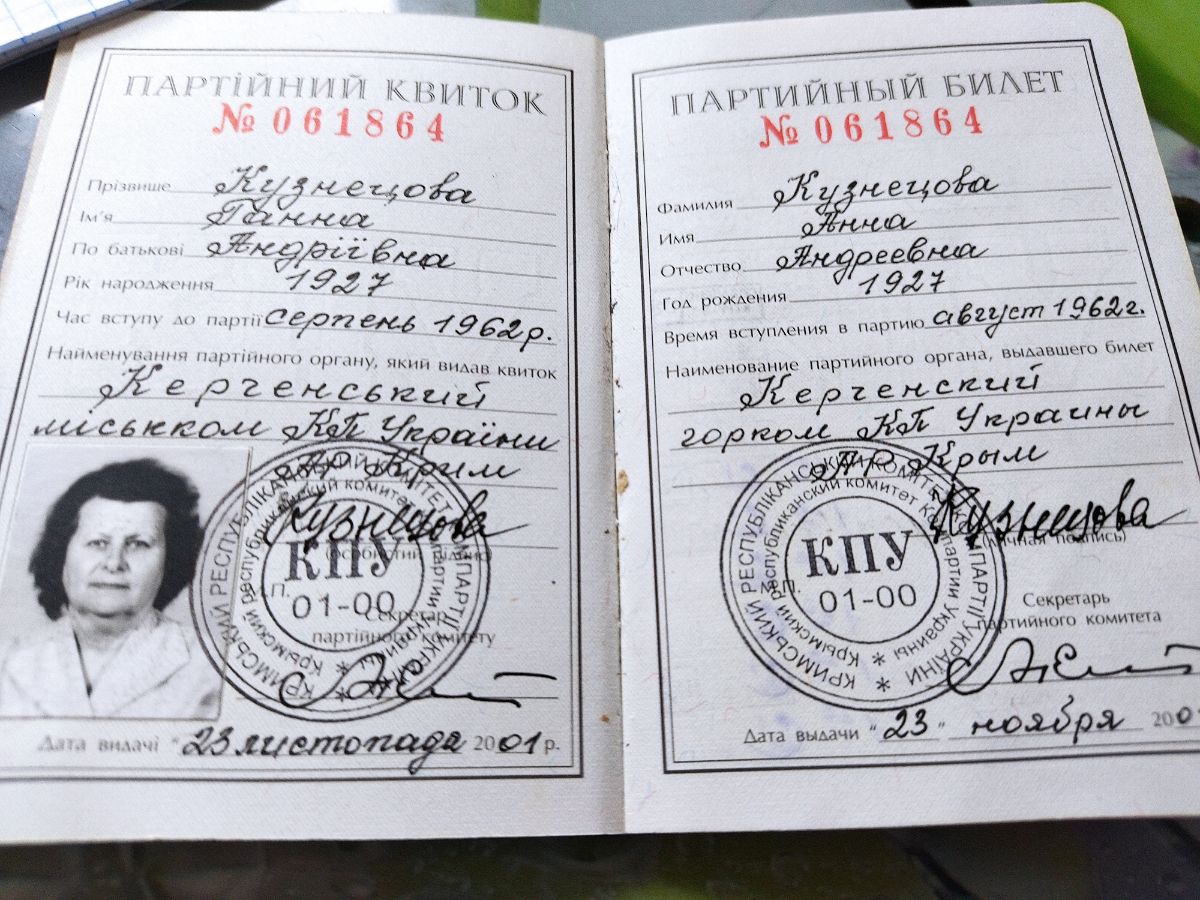 ПАРТІЙНИЙ КВИТОК
№ 061864
Прізвище Кузнецова
Ім'я Ганна
По батькові Андріївна
Рік народження 1927
Час вступу до партії серпень 1962р.
Найменування партійного органу, який видав квиток
Керченський
міськком КП України
АР Крим
Кузнецова
(особистий підпис)
КРИМСЬКИЙ РЕСПУБЛІКАНСЬКИЙ КОМІТЕТ КОМПАРТІЇ УКРАЇНИ
Крымский республиканский комитет Компартии Украины
КПУ
01-00
М.П.
Секретар
партійного комітету
Дата видачі "23 листопада 2001 р.
ПАРТИЙНЫЙ БИЛЕТ
№ 061864
Фамилия Кузнецова
Имя Анна
Отчество Андреевна
Год рождения 1927
Время вступления в партию август 1962г.
Наименование партийного органа, выдавшего билет
Керченский
горком КП Украины
АР Крым
Кузнецова
(личная подпись)
КРИМСЬКИЙ РЕСПУБЛІКАНСЬКИЙ КОМІТЕТ КОМПАРТІЇ УКРАЇНИ
Крымский республиканский комитет Компартии Украины
КПУ
01-00
М.П.
Секретарь
партийного комитета
Дата выдачи "23" ноября 200